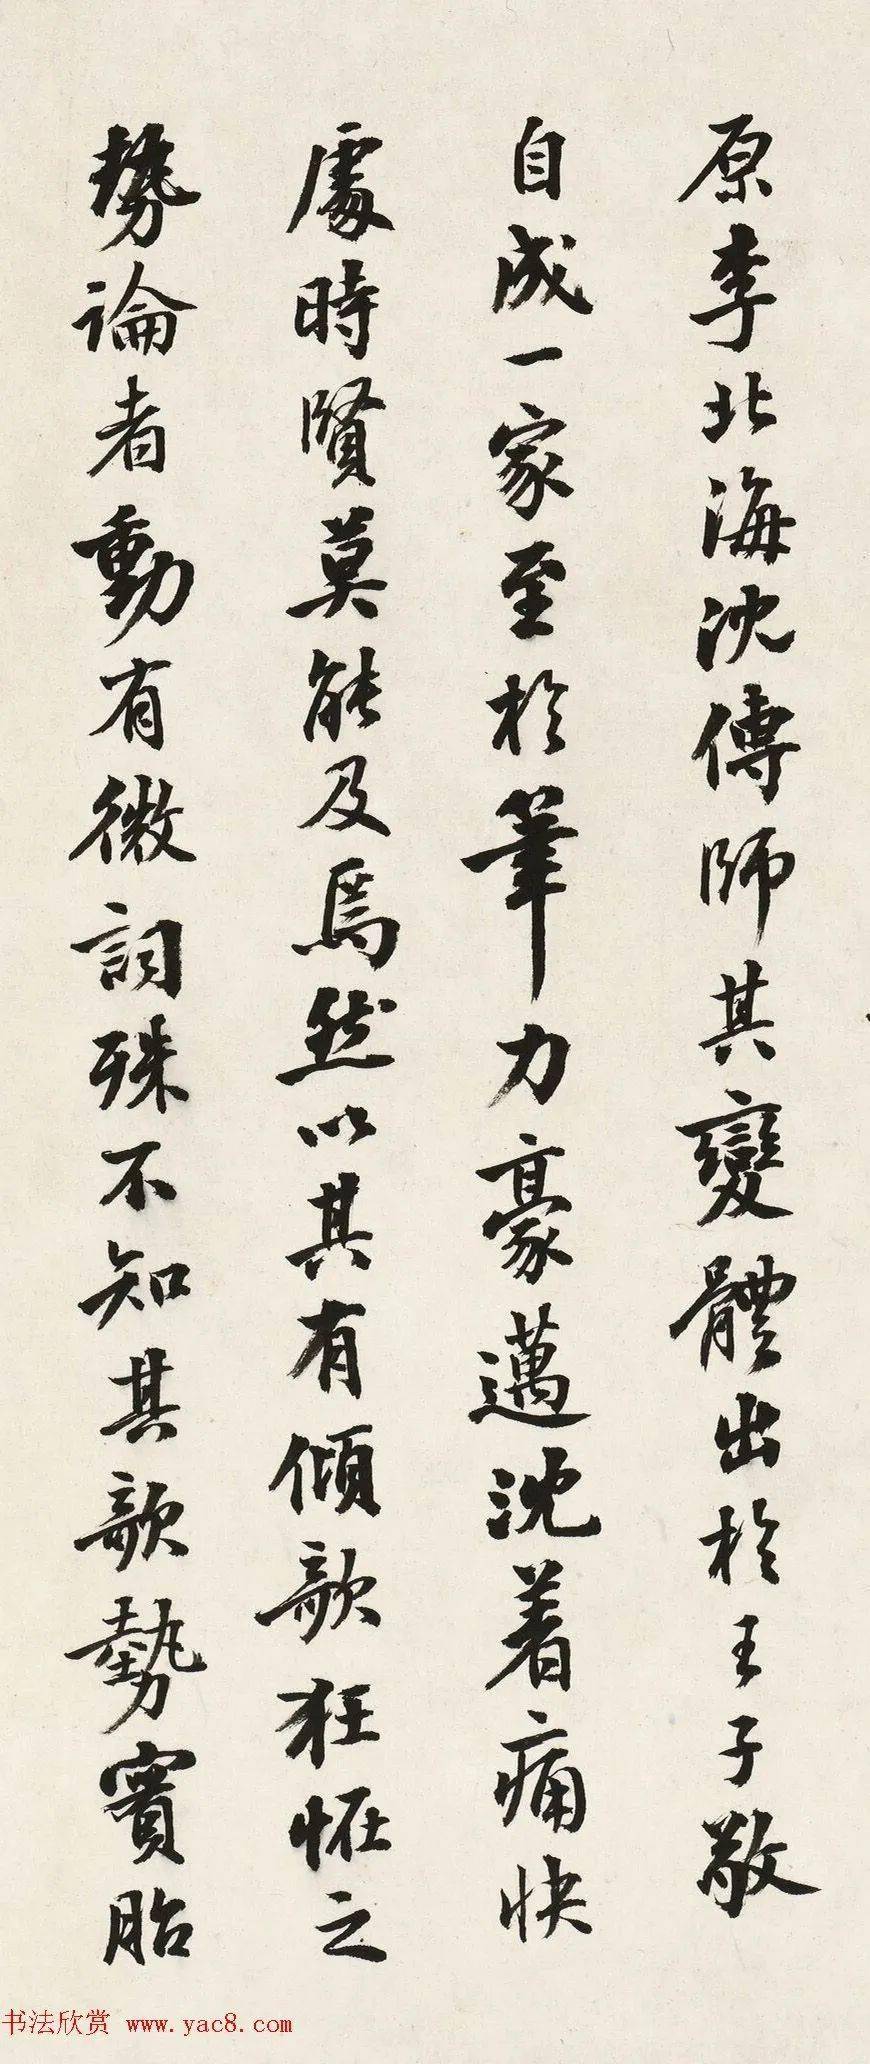 原李北海沈傳師其變體出於王子敬
自成一家至於筆力豪邁沈着痛快
處時賢莫能及焉然以其有傾欹狂怪之
勢論者動有微詞殊不知其欹勢實胎
书法欣赏 www.yac8.com